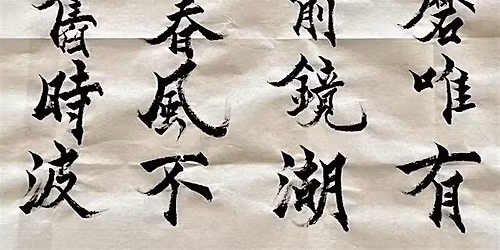 磨唯有
前鏡湖
春風不
舊時波